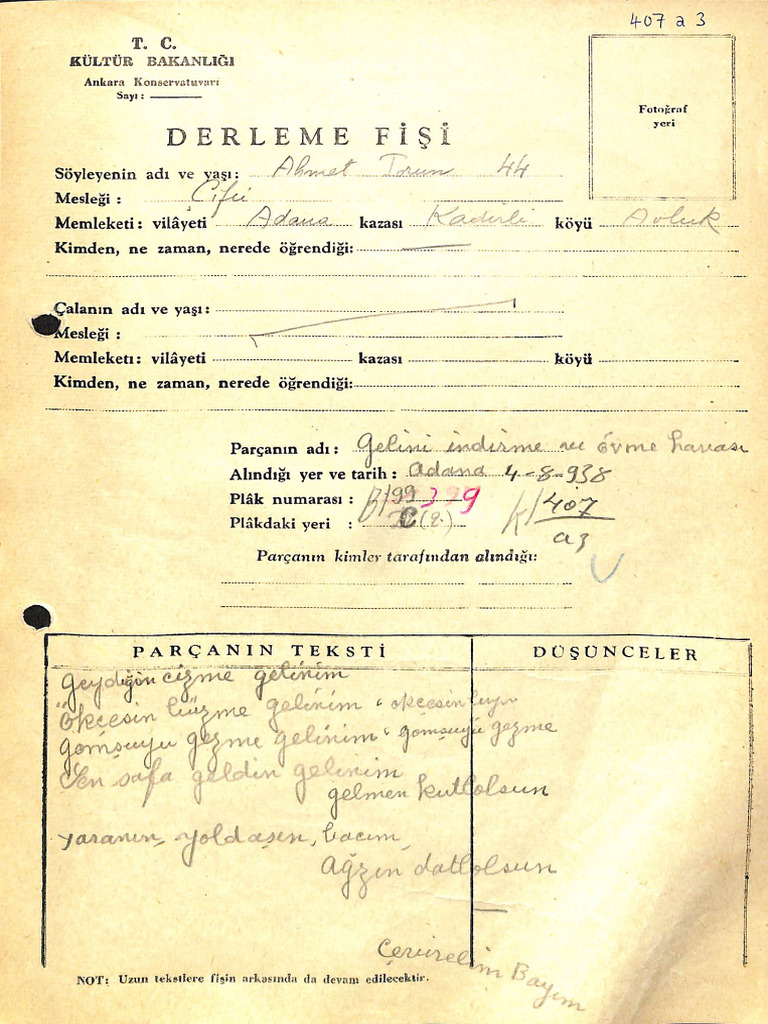 407 a 3
T. C.
KÜLTÜR BAKANLIĞI
Ankara Konservatuvarı
Sayı :
Fotoğraf
yeri
DERLEME FİŞİ
Söyleyenin adı ve yaşı: Ahmet Torun 44
Mesleği : Çifçi
Memleketi: vilâyeti Adana kazası Kadirli köyü Avluk
Kimden, ne zaman, nerede öğrendiği:
Çalanın adı ve yaşı:
Mesleği :
Memleketi: vilâyeti kazası köyü
Kimden, ne zaman, nerede öğrendiği:
Parçanın adı: Gelini indirme ve övme havası
Alındığı yer ve tarih: Adana 4-8-938
Plâk numarası : B/99 399 K/407
Plâkdaki yeri : C (2.) a3
Parçanın kimler tarafından alındığı:
PARÇANIN TEKSTİ
DÜŞÜNCELER
Geydiğin çizme gelinim
Ökçesin büzme gelinim
gomşuyu gezme gelinim gomşuyu gezme
Sen safa geldin gelinim
gelmen kutlolsun
yaranın, yoldaşın, bacım,
Ağzın datlolsun
Çevirelim Bayım
NOT: Uzun tekstlere fişin arkasında da devam edilecektir.